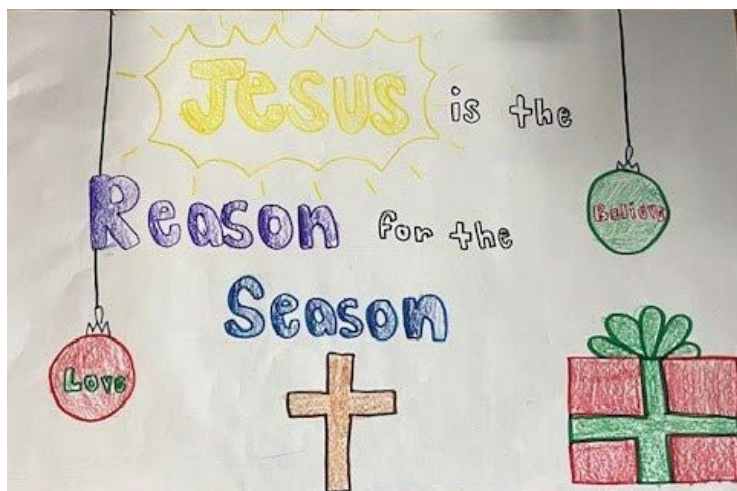 Jesus is the
Reason for the
Season
Believe
Love